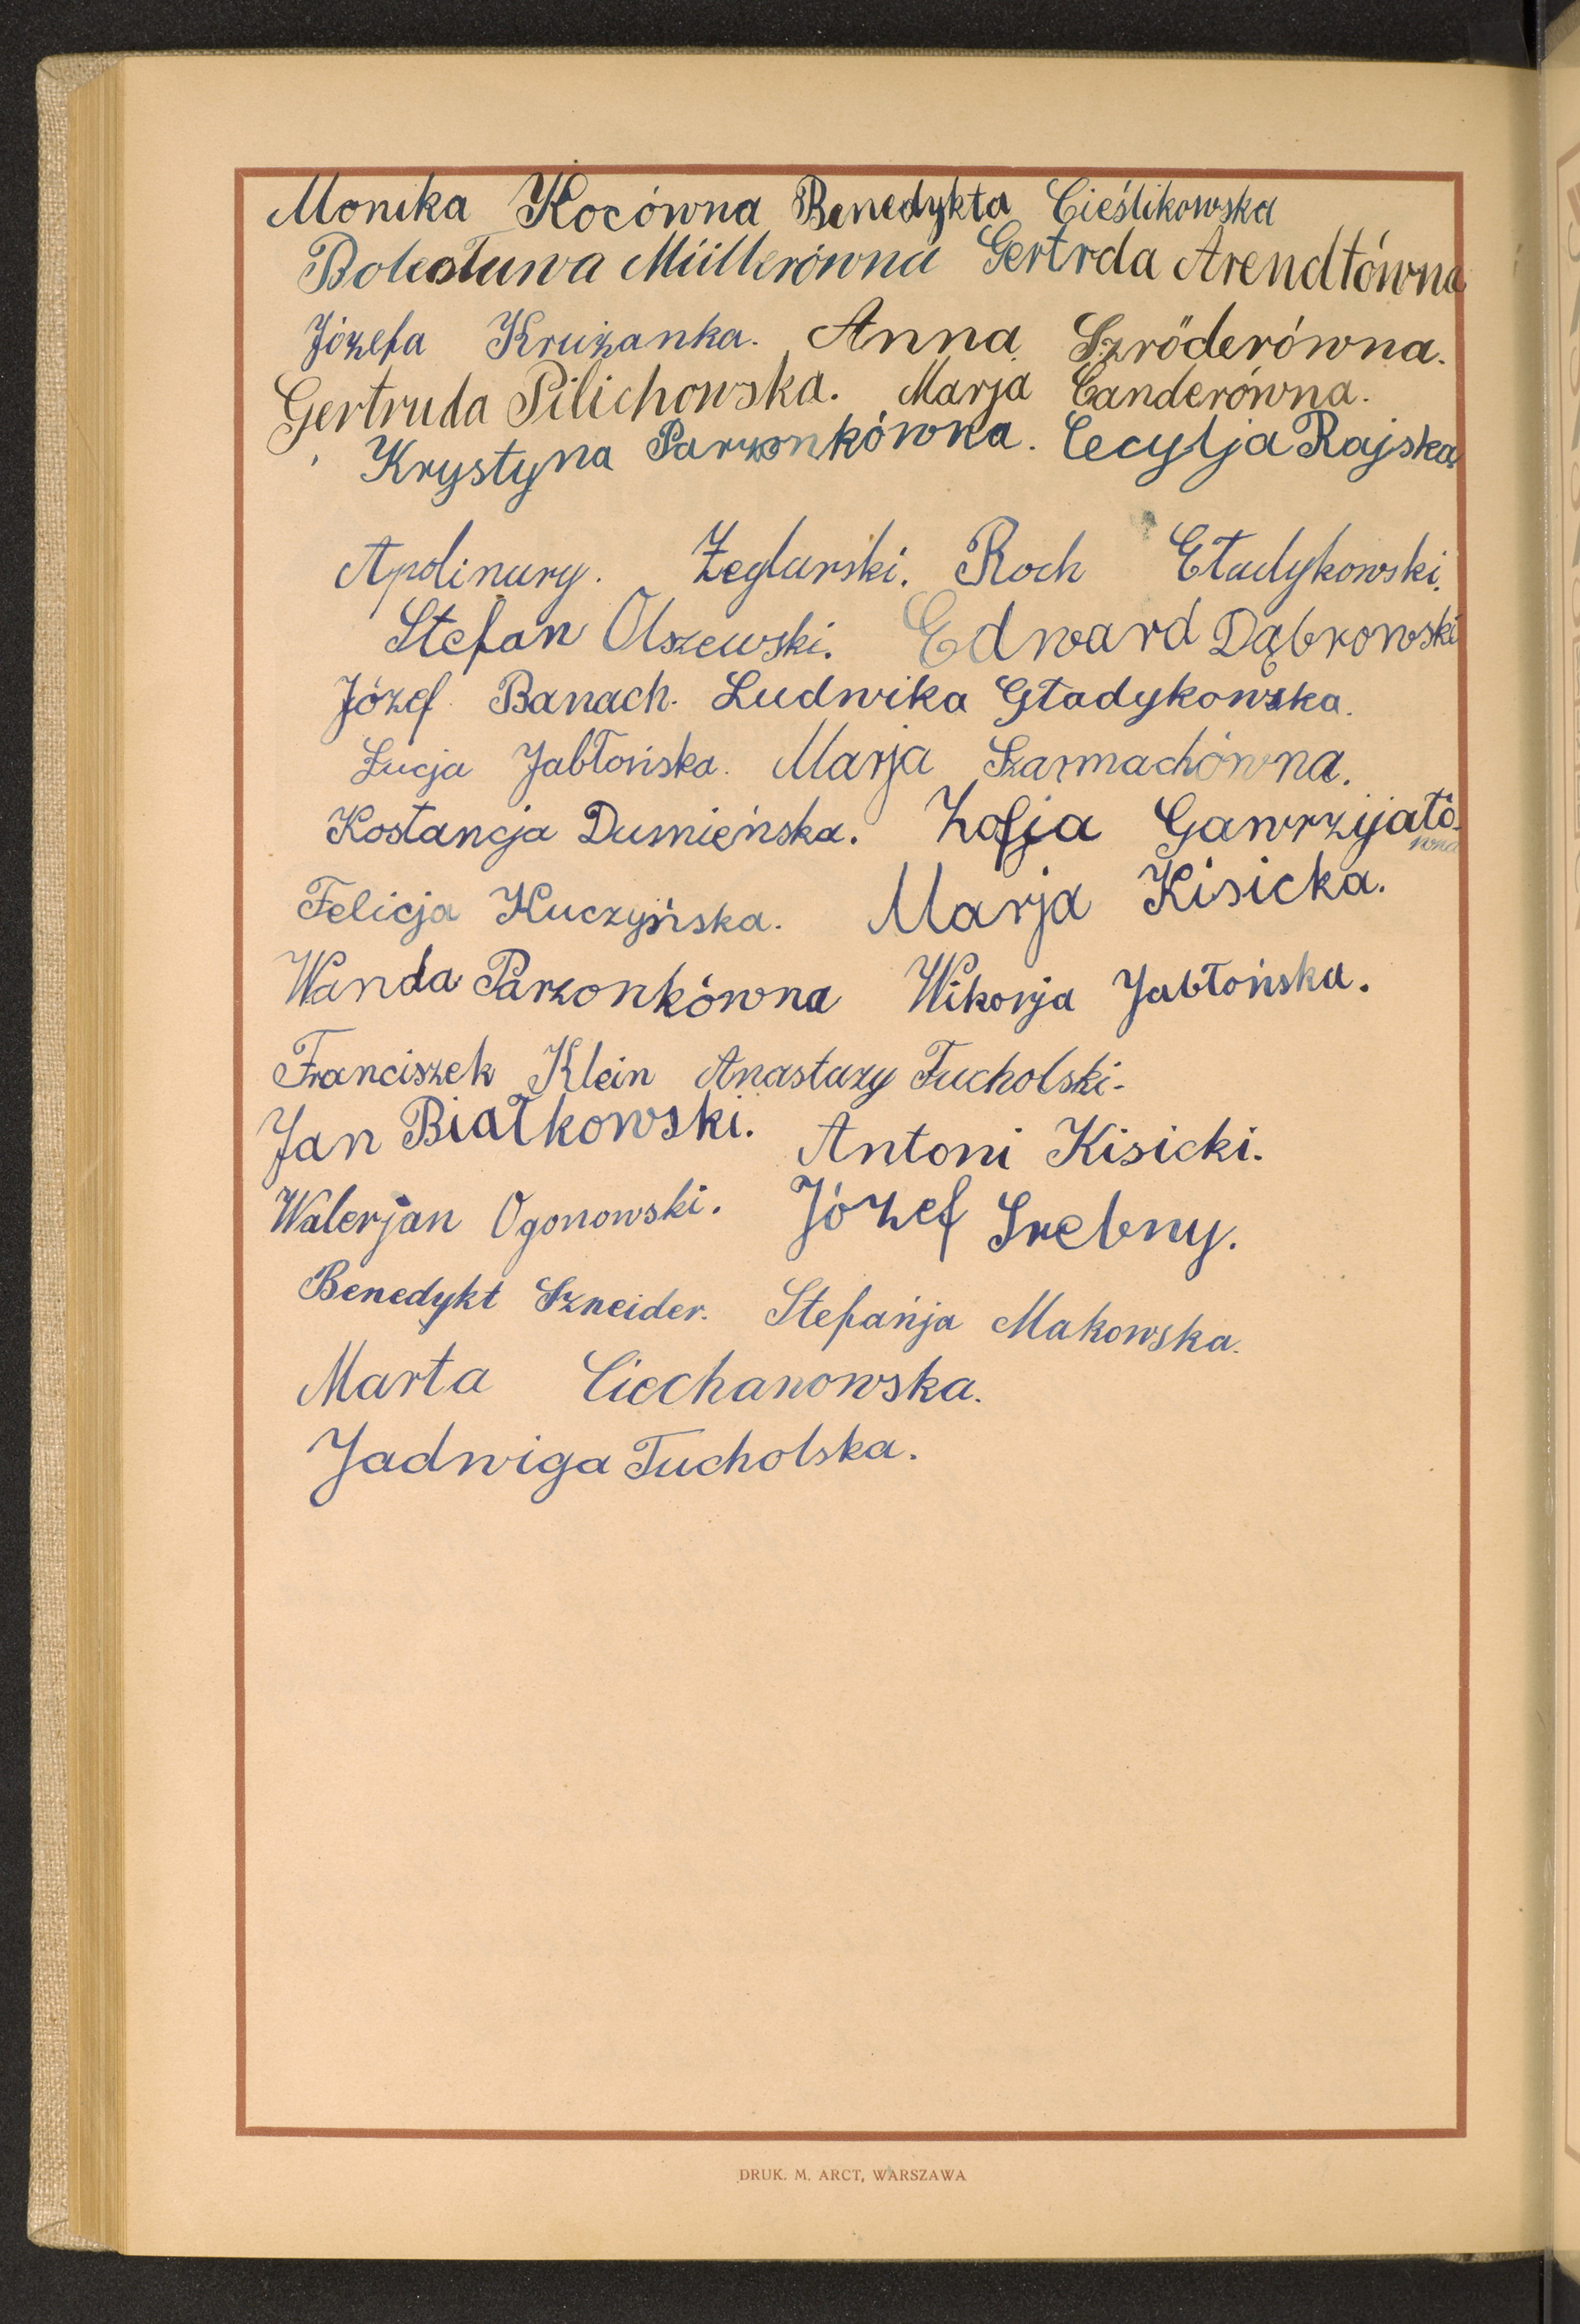 Monika Kocówna Benedykta Cieślikowska
Bolesława Müllerówna Gertrda Arendtówna
Józefa Krużanka. Anna Szröderówna.
Gertruda Pilichowska. Marja Canderówna.
Krystyna Parzonkówna. Cecylja Rajska
Apolinary. Żeglarski. Roch Gładykowski.
Stefan Olszewski. Edward Dąbrowski
Józef Banach. Ludwika Gładykowska.
Łucja Jabłońska. Marja Szarmachówna.
Kostancja Dumieńska. Zofja Gawrzijató-
wna
Felicja Kuczyńska. Marja Kisicka.
Wanda Parzonkówna Wikorja Jabłońska.
Franciszek Klein Anastazy Tucholski-
Jan Białkowski. Antoni Kisicki.
Walerjan Ogonowski. Józef Srebny.
Benedykt Szneider. Stefańja Makowska.
Marta Ciechanowska.
Jadwiga Tucholska.
DRUK. M. ARCT, WARSZAWA